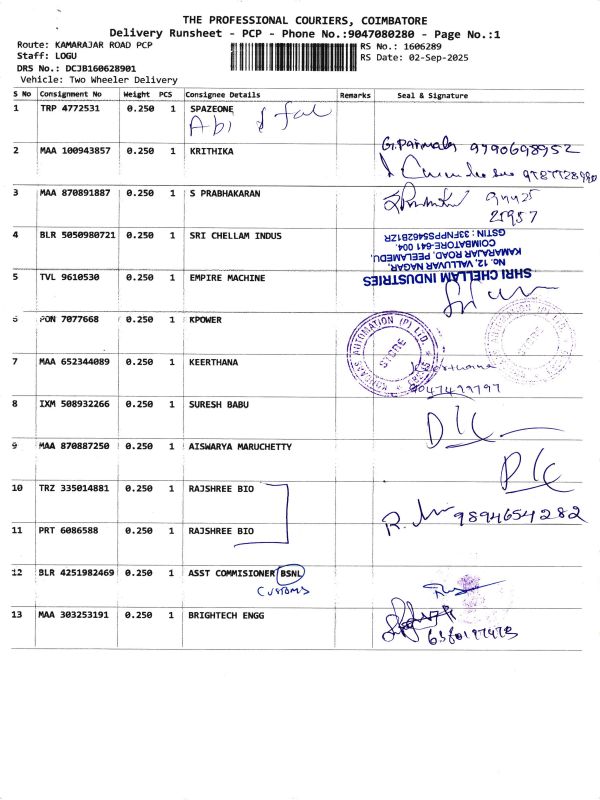 THE PROFESSIONAL COURIERS, COIMBATORE
Delivery Runsheet - PCP - Phone No.:9047080280 - Page No.:1
Route: KAMARAJAR ROAD PCP
Staff: LOGU
DRS No.: DCJB160628901
Vehicle: Two Wheeler Delivery
RS No.: 1606289
RS Date: 02-Sep-2025
S No Consignment No Weight PCS Consignee Details Remarks Seal & Signature
1 TRP 4772531 0.250 1 SPAZEONE
Abi
2 MAA 100943857 0.250 1 KRITHIKA
9790698952
3 MAA 870891887 0.250 1 S PRABHAKARAN
94425
21957
4 BLR 5050980721 0.250 1 SRI CHELLAM INDUS
SHRI CHELLAM INDUSTRIES
No. 12, VALLUVAR NAGAR,
KAMARAJAR ROAD, PEELAMEDU,
COIMBATORE-641 004.
GSTIN : 33FNPPS5462B1ZR
5 TVL 9610530 0.250 1 EMPIRE MACHINE
6 PON 7077668 0.250 1 KPOWER
AUTOMATION (P) LTD.
STORE
7 MAA 652344089 0.250 1 KEERTHANA
8 IXM 508932266 0.250 1 SURESH BABU
9 MAA 870887250 0.250 1 AISWARYA MARUCHETTY
10 TRZ 335014881 0.250 1 RAJSHREE BIO
9894654282
11 PRT 6086588 0.250 1 RAJSHREE BIO
12 BLR 4251982469 0.250 1 ASST COMMISIONER BSNL
CUSTOMS
13 MAA 303253191 0.250 1 BRIGHTECH ENGG